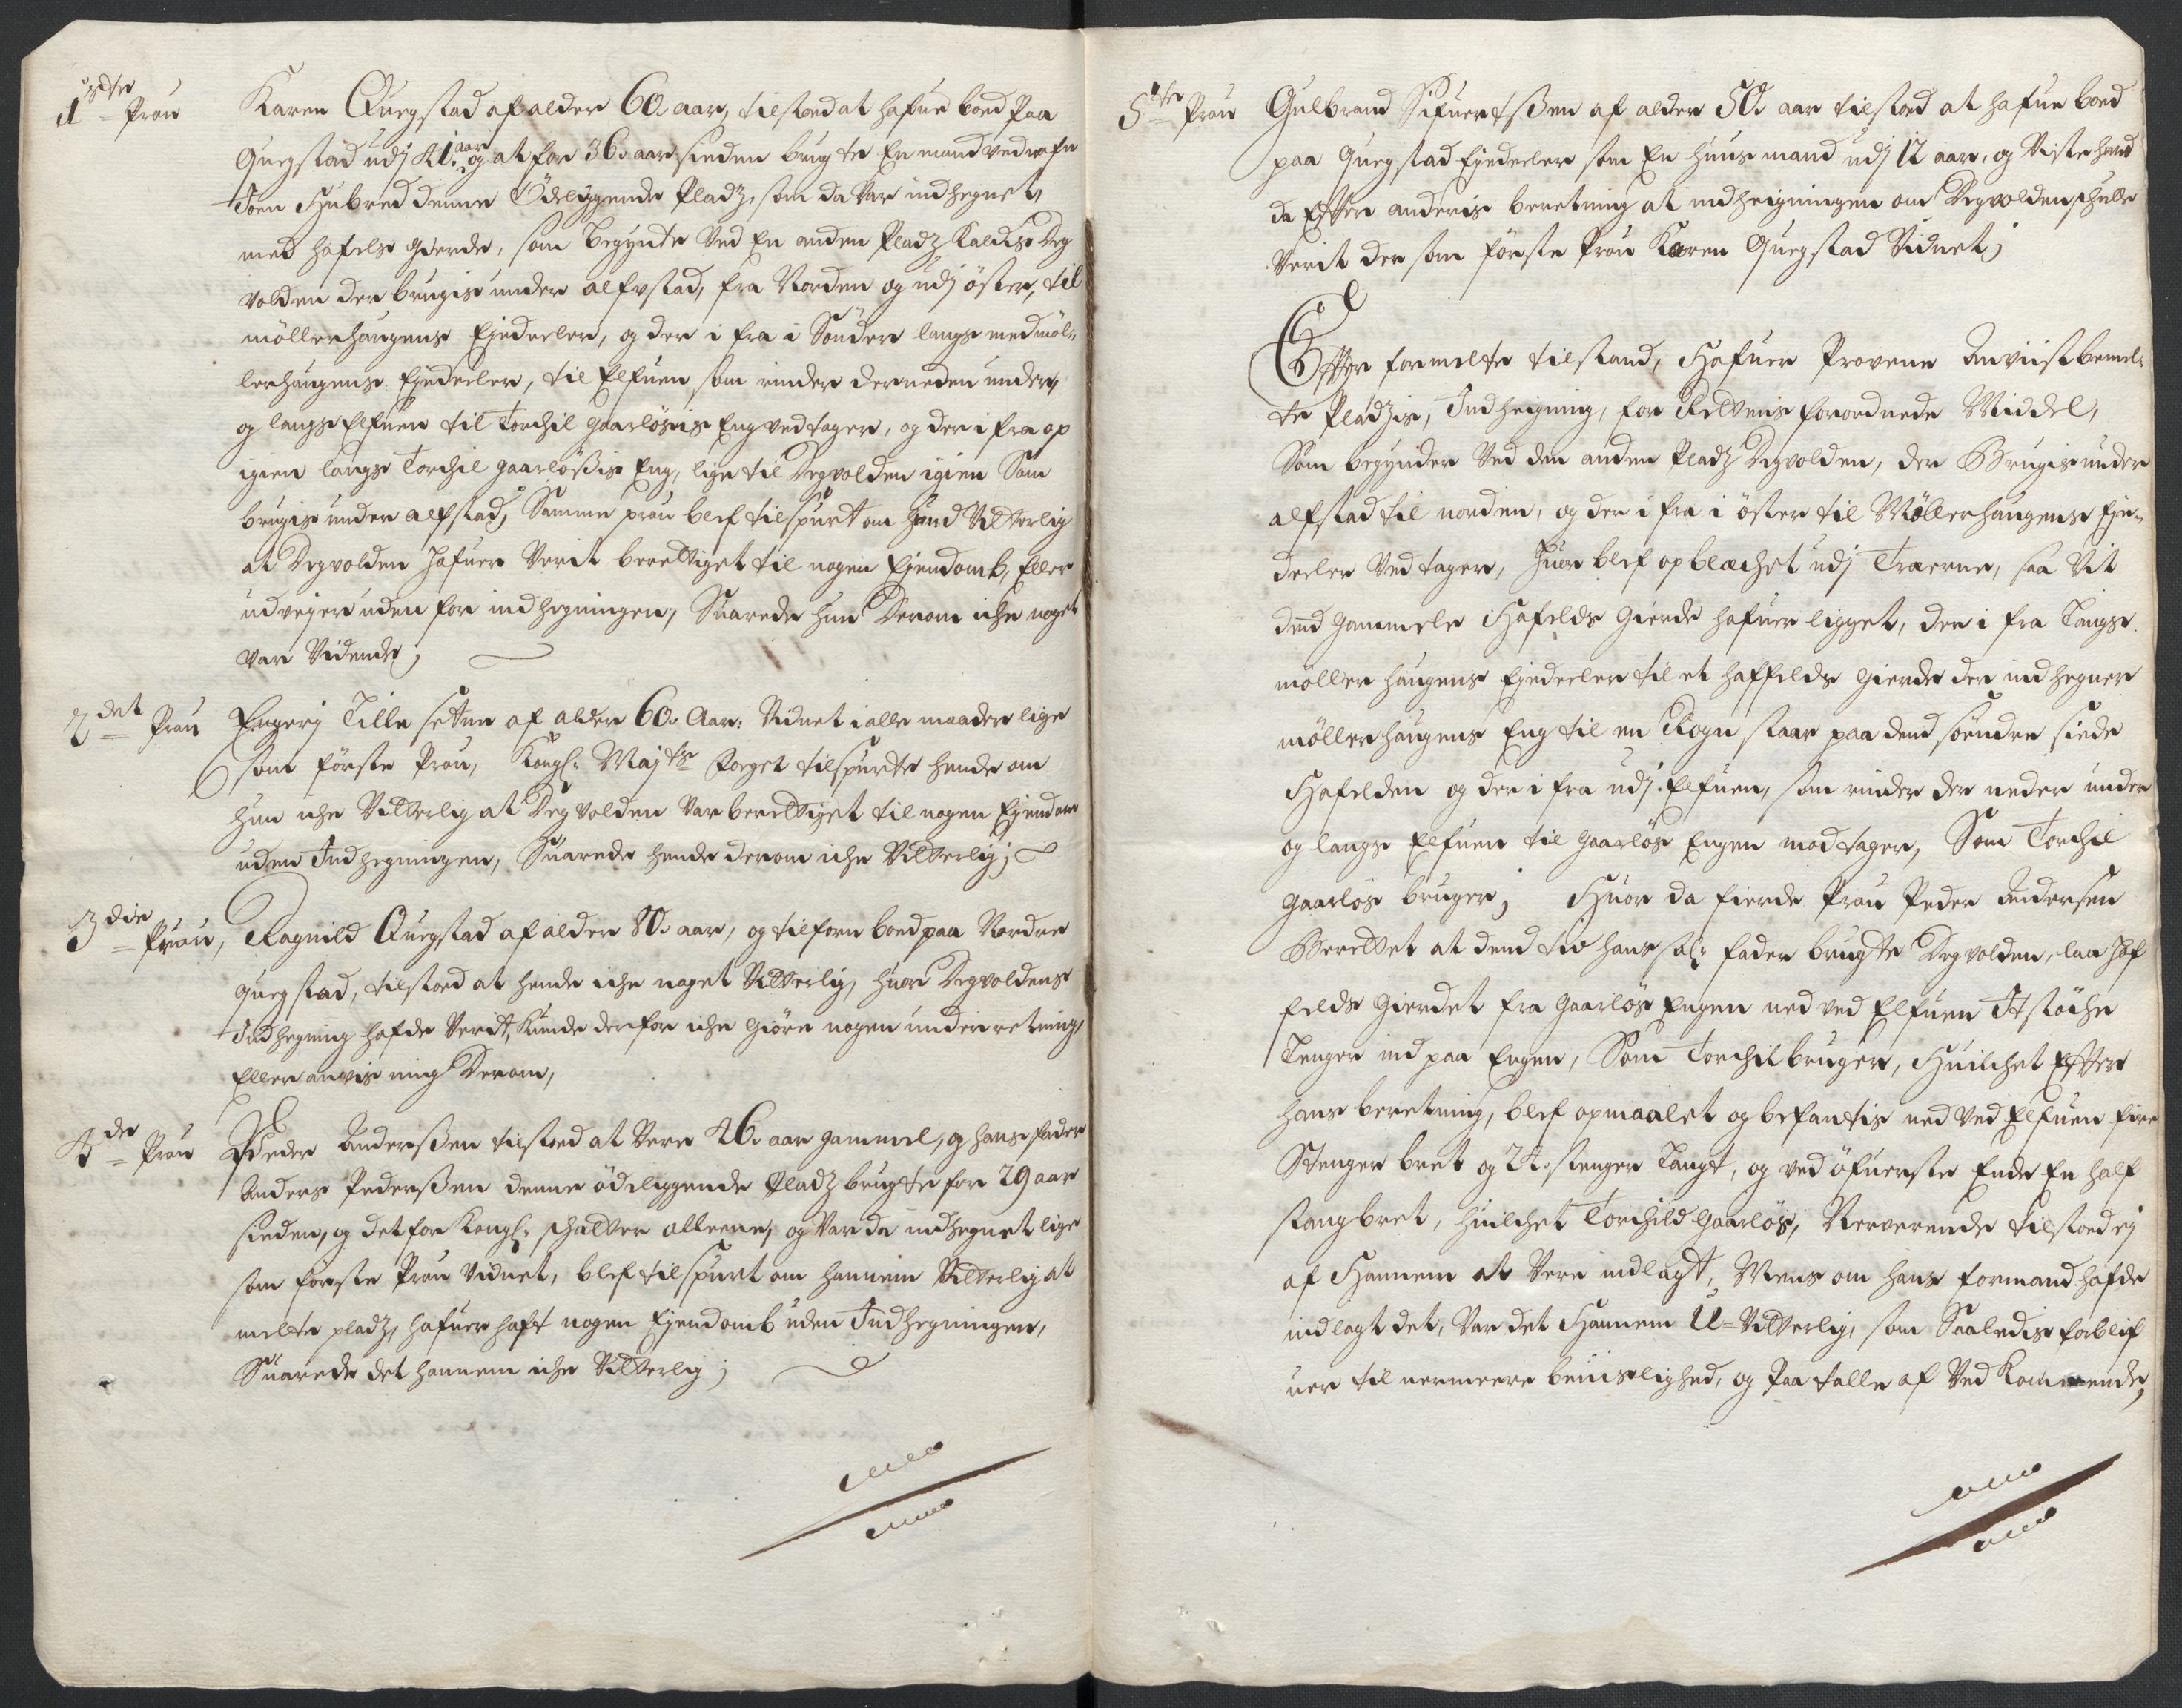 1ste Prou Karen Quegstad af alder 60 aar, tilstoed at hafue boed Paa
Quegstad udj 41 aar, og at for 36 aar sieden brugte En mand ved nafn
Joen Hubred denne Ödeliggende Pladz, som da var indhegnet,
med hafels gierde, som begynte Ved En anden Pladz kaldis Deg
volden der brugis under alfstad, fra Norden og udj öster, til
möllerhaugens Eyedeeler, og der i fra i Sönder langs med möl-
lerhaugens Eyedeeler, til Elfuen som rinder der neden under,
og langs Elfuen til Torchil gaarlösis Eng ved tager, og der i fra op
igien langs Torchil gaarlößis Eng, lige til Degvolden igien Som
brugis under alfstad, Samme prou blef tilspurt om hend Vitterlig
at Degvolden hafuer Verit berettiget til nogen Eyendomb, Eller
udveyer uden for indhegningen, Suarede hun Derom iche noget
var Vidende,
2det Prou Engerj Lille setter af alder 60 Aar: Vidnet i alle maader lige
som förste Prou, Kongl: Maj:ts Foget tilspurte hende om
hun iche Vitterlig at Degvolden var berettiget til nogen Eyendom
uden Indhegningen, Suarede hende derom iche Vitterlig;
3die Prou, Ragnild Quegstad af alder 80 aar, og tilforn boed paa Nordre
quegstad, tilstoed at hende iche noget Vitterlig, huor Degvoldens
Indhegning hafde Verit, kunde derfor iche giöre nogen underretning,
Eller anvisning Derom,
4de Prou Peder Anderßen tilstoed at Vere 46 aar gammel, og hans fader
Anders Pederßen denne ödeliggende Pladz brugte for 29 aar
sieden, og det for Kongl: schatter alleene, og Var da indhegnet lige
som förste Prou Vidnet, blef tilspurt om hannem Vitterlig at
melte pladz, hafuer haft nogen Eyendomb uden Indhegningen,
Suarede det hannem iche Vitterlig;
5te Prou Gulbrand Sifuertßen af alder 50 aar tilstoed at hafue boed
paa quegstad Eyedeeler som En huusmand udj 12 aar, og Viste hand
da Efter anderis beretning at indheigningen om Degvolden schulle
Verit der som förste Prou Karen Quegstad Vidnet;
Effter formelte tilstand, Hafuer Provene Anviist bemel-
te Pladzis, Indheigning, for Rettens forordnede Middel,
Som begynder Ved den anden Pladz Degvolden, der Brugis under
alfstad til norden, og der i fra i öster til Möllerhaugens Eye-
deeler Ved tager, huor blef opblechet udj Træerne, saa Vit
dend gammele Hafelds gierde hafuer ligget, der i fra Langs
möllerhaugens Eyedeeler til et haffelds gierde der indhegner
möllerhaugens Eng til en Rogn staar paa dend söendre siede
Hafelden og der i fra udj Elfuen, som rinder der neder under
og langs Elfuen til gaarlös Engen mod tager, Som Torchil
gaarlös bruger; Huor da fierde Prou Peder Andersen
Berettet at dend tid hans sal: fader brugte Degvolden, laa haf
felds gierdet fra gaarlös Engen ned ved Elfuen Et stöche
Lenger ind paa Engen, Som Torchil bruger, Huilchet Efter
hans beretning, blef opmaalet og befantis ned Ved Elfuen fire
Stenger bret og 24 stenger Langt, og ved öfuerste Ende En half
stang bret, huilchet Torchild gaarlös, Nerverende tilstoed ej
af Hannem at Vere indlagt, Mens om hans formand hafde
indlagt det, Var det Hannem U-vitterlig, som Saaledis forblif
uer til nermeere beviislighed, og Paa talle af Ved Kommende,